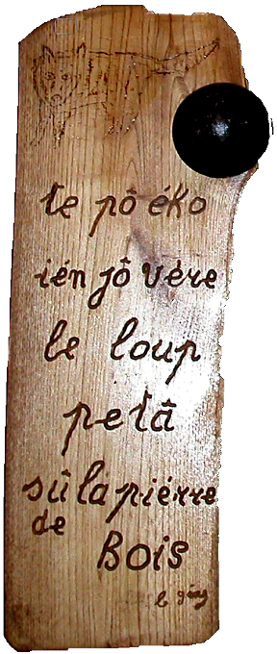 te pô éko
ién jô vère
le loup
petâ
sû la piérre
de
BOIS